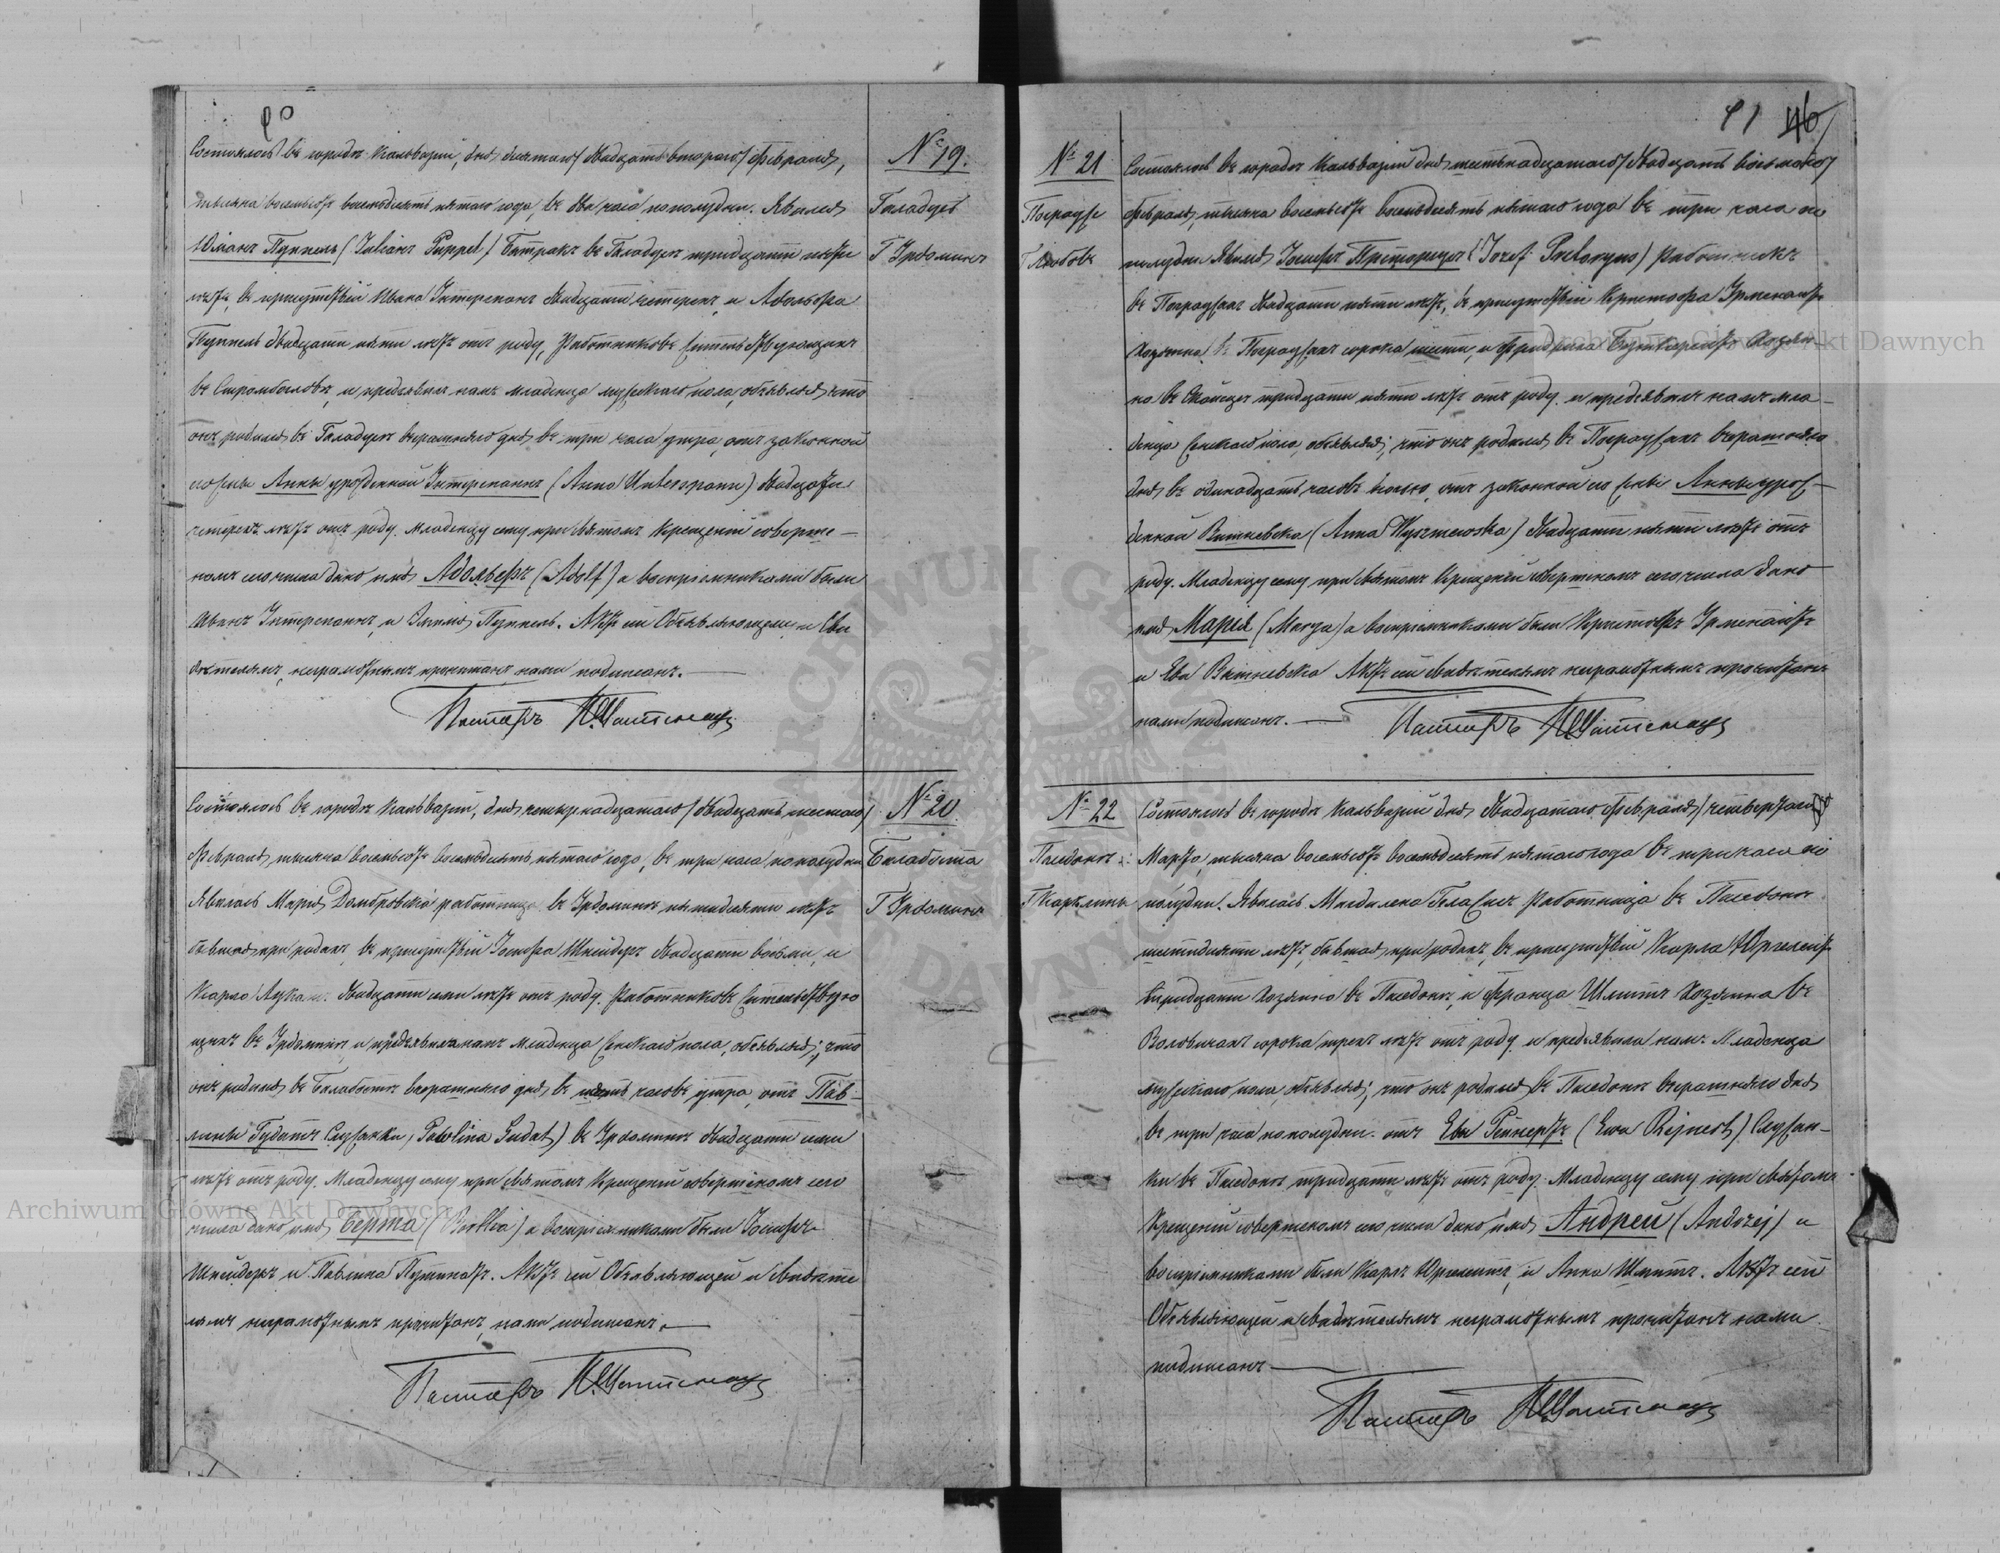 90
Состоялось въ городѣ Кальваріи, дня десятаго / двадцать втораго / Февраля,
тысяча восемьсотъ восемьдесятъ пятаго года, въ два часа пополудни. Явился
Юліанъ Пуппель (Julian Puppel) Батракъ въ Галадусѣ тридцати
лѣтъ, въ присутствіи Ивана Унтерспанъ двадцати четырехъ, и Адольфа
Пуппель двадцати пяти лѣтъ отъ роду, Работниковъ жительствующихъ
въ и предъявилъ намъ младенца мужескаго пола, объявляя, что
онъ родился въ Галадусѣ вчерашняго дня въ три часа утра, отъ законной
его жены Анны урожденной Унтерспанъ (Anna Unterspann) двадцати
четырехъ лѣтъ отъ роду. Младенцу сему при Святомъ Крещеніи соверше-
номъ сего числа дано имя Адольфъ (Adolf) а воспріемниками были
Иванъ Унтерспанъ, и Пуппель. Актъ сей Объявляющему и Сви
дѣтелямъ, неграмотнымъ прочитанъ, нами подписанъ.
Пасторъ
№ 19.
Галадусъ
Г Урдоминъ
Состоялось въ городѣ Кальваріи, дня четырнадцатаго / двадцать шестаго /
Февраля, тысяча восемьсотъ восемьдесятъ пятаго года, въ три часа пополудни
Явилась Марія Домбровска работница въ Урдоминѣ пятидесяти лѣтъ
бывшая при родахъ, въ присутствіи Іосифа Шнейдеръ двадцати восьми, и
Карла двадцати семи лѣтъ отъ роду. Работниковъ жительствую
щихъ въ Урдоминѣ, и предъявила намъ младенца женскаго пола, объявляя; что
онъ родился въ Балабостѣ вчерашняго дня въ часовъ утра, отъ Пав-
лины Гудатъ Служанки, (Pawlina Gudat) въ Урдоминѣ двадцати семи
лѣтъ отъ роду. Младенцу сему при Святомъ Крещеніи совершенномъ сего
числа дано имя Берта (Bertha) а воспріемниками были Іосифъ
Шнейдеръ и Павлина Актъ сей Объявляющей и Свидѣте
лямъ неграмотнымъ прочитанъ, нами подписанъ.
Пасторъ
№ 20.
Г Урдоминъ
91 46
№ 21
Г Любовъ
Состоялось въ городѣ Кальваріи дня шестьнадцатаго / двадцать восьмаго /
Февраля, тысяча восемьсотъ восемьдесятъ пятаго года въ три часа по
полудни Явился Іосифъ Преторіусъ (Jozef Pretoryus) Работникъ
въ двадцати пяти лѣтъ, въ присутствіи Кристофа
Хозяина въ сорока шести, и Фридриха Хозяи
на въ тридцати пяти лѣтъ отъ роду и предъявилъ намъ мла-
денца женскаго пола, объявляя; что онъ родился въ вчерашняго
дня въ одинадцать часовъ ночью, отъ законной его жены Анны урож-
денной Вишневска (Anna Wyszniewska) двадцати пяти лѣтъ отъ
роду. Младенцу сему при Святомъ Крещеніи совершенномъ сего числа дано
имя Марія (Marya) а воспріемниками были Кристофъ
и Ева Вишневска Актъ сей Свидѣтелямъ неграмотнымъ прочитанъ
нами подписанъ.
Пасторъ
№ 22
Состоялось въ городѣ Кальваріи дня двадцатаго Февраля / четвертаго
Марта, тысяча восемьсотъ восемьдесятъ пятаго года въ три часа по
полудни. Явилась Магдалена Работница въ
шестидесяти лѣтъ, бывшая при родахъ, въ присутствіи Карла
тридцати Хозяина въ и Франца Шмитъ Хозяина въ
сорока трехъ лѣтъ отъ роду и предъявила намъ Младенца
мужескаго пола, объявляя; что онъ родился въ вчерашняго дня
въ три часа пополудни отъ Евы Рейнертъ (Ewa Rejnert) Служан-
ки въ тридцати лѣтъ отъ роду. Младенцу сему при Святомъ
Крещеніи совершенномъ сего числа дано имя Андрей (Andrzej) а
воспріемниками были Карлъ и Анна Шмитъ. Актъ сей
Объявляющей и свидѣтелямъ неграмотнымъ прочитанъ нами
подписанъ
Пасторъ
ARCHIWUM GŁÓWNE AKT DAWNYCH
Archiwum Główne Akt Dawnych
Archiwum Główne Akt Dawnych